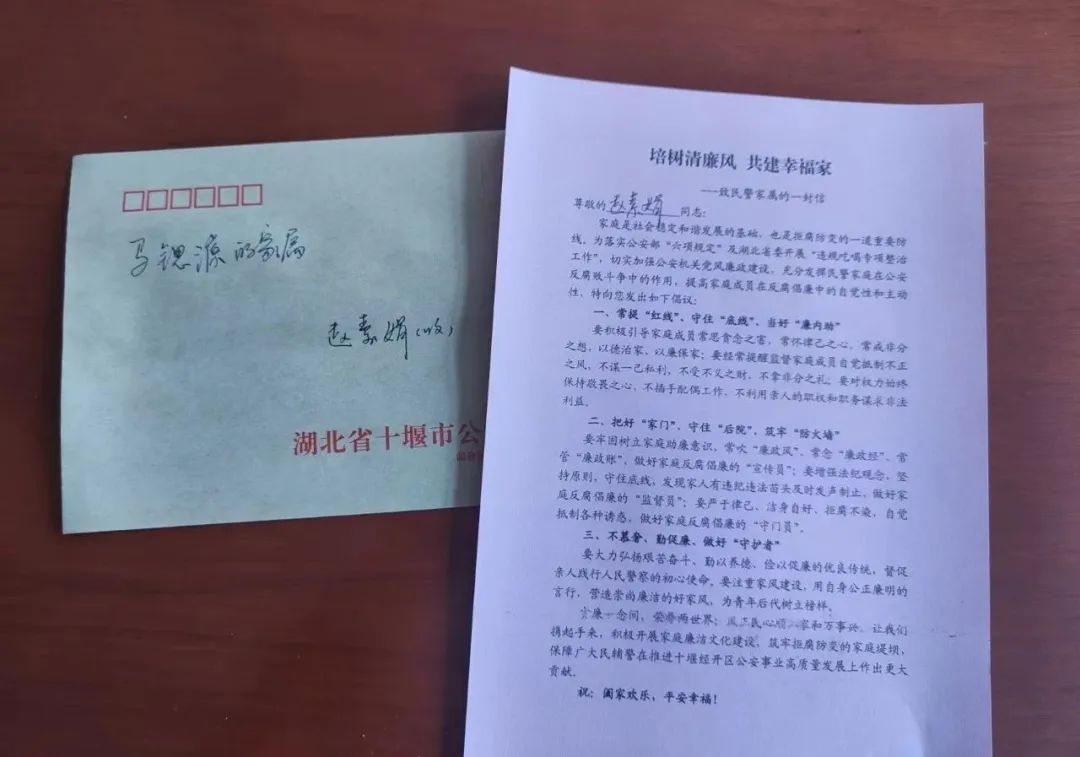 马锶源的家属
赵素娟(收)
湖北省十堰市公
培树清廉风 共建幸福家
——致民警家属的一封信
尊敬的赵素娟同志:
家庭是社会稳定和谐发展的基础,也是拒腐防变的一道重要防
线。为落实公安部“六项规定”及湖北省委开展“违规吃喝专项整治
工作”,切实加强公安机关党风廉政建设,充分发挥民警家庭在公安
反腐败斗争中的作用,提高家庭成员在反腐倡廉中的自觉性和主动
性,特向您发出如下倡议:
一、常提“红线”、守住“底线”、当好“廉内助”
要积极引导家庭成员常思贪念之害,常怀律己之心,常戒非分
之想,以德治家、以廉保家;要经常提醒监督家庭成员自觉抵制不正
之风,不谋一己私利,不受不义之财,不拿非分之礼;要对权力始终
保持敬畏之心,不插手配偶工作,不利用亲人的职权和职务谋求非法
利益。
二、把好“家门”、守住“后院”、筑牢“防火墙”
要牢固树立家庭助廉意识,常吹“廉政风”、常念“廉政经”、常
管“廉政账”,做好家庭反腐倡廉的“宣传员”;要增强法纪观念,坚
持原则,守住底线,发现家人有违纪违法苗头及时发声制止,做好家
庭反腐倡廉的“监督员”;要严于律己、洁身自好、拒腐不染,自觉
抵制各种诱惑,做好家庭反腐倡廉的“守门员”。
三、不慕奢、勤促廉、做好“守护者”
要大力弘扬艰苦奋斗、勤以养德、俭以促廉的优良传统,督促
亲人践行人民警察的初心使命。要注重家风建设,用自身公正廉明的
言行,营造崇尚廉洁的好家风,为青年后代树立榜样。
贪廉一念间,荣辱两世界;风正民心顺,家和万事兴。让我们
携起手来,积极开展家庭廉洁文化建设,筑牢拒腐防变的家庭堤坝,
保障广大民辅警在推进十堰经开区公安事业高质量发展上作出更大
贡献。
祝:阖家欢乐,平安幸福!